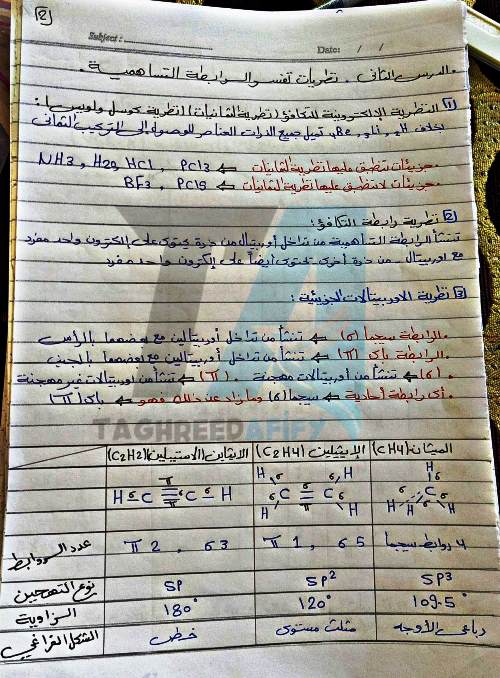 2
Subject: 
Date: / /
الدرس الثاني . نظريات تفسر الرابطة التساهمية .
1 النظرية الإلكترونية للتكافؤ (نظرية الثمانيات) (نظرية كوسل ولويس) :
بخلاف H, Li, Be تميل جميع الذرات العناصر للوصول إلى التركيب الثماني
• جزيئات تنطبق عليها نظرية الثمانيات ⇐ NH3, H2O, HCl, PCl3
• جزيئات لا تنطبق عليها نظرية الثمانيات ⇐ BF3, PCl5
2 نظرية رابطة التكافؤ :
تنشأ الرابطة التساهمية من تداخل أوربيتال من ذرة يحتوى على إلكترون واحد مفرد
مع اوربيتال من ذرة أخرى تحتوى أيضاً على إلكترون واحد مفرد
3 نظرية الاوربيتالات الجزيئية :
• الرابطة سيجما (σ) ⇐ تنشأ من تداخل أوربيتالين مع بعضهما بالراس
• الرابطة باى (π) ⇐ تنشأ من تداخل أوربيتالين مع بعضهما بالجنب
• (σ) ⇐ تنشأ من أوربيتالات مهجنة . (π) ⇐ تنشأ من أوربيتالات غير مهجنة
• أى رابطة أحادية ⇐ سيجما (σ) وما زاد عن ذلك فهو ⇐ باى (π)
TAGHREED AFIFY
الميثان (CH4) الإيثيلين (C2H4) الايثاين (الاستيلين) (C2H2)
H σ C π σ π C σ H
H H σ σ C σ π C σ σ H H
H σ C H H H
عدد الروابط 4 روابط سيجما 5 σ , 1 π 3 σ , 2 π
نوع التهجين SP3 SP2 SP
الزاوية 109.5° 120° 180°
الشكل الفراغي رباعي الأوجه مثلث مستوى خطى